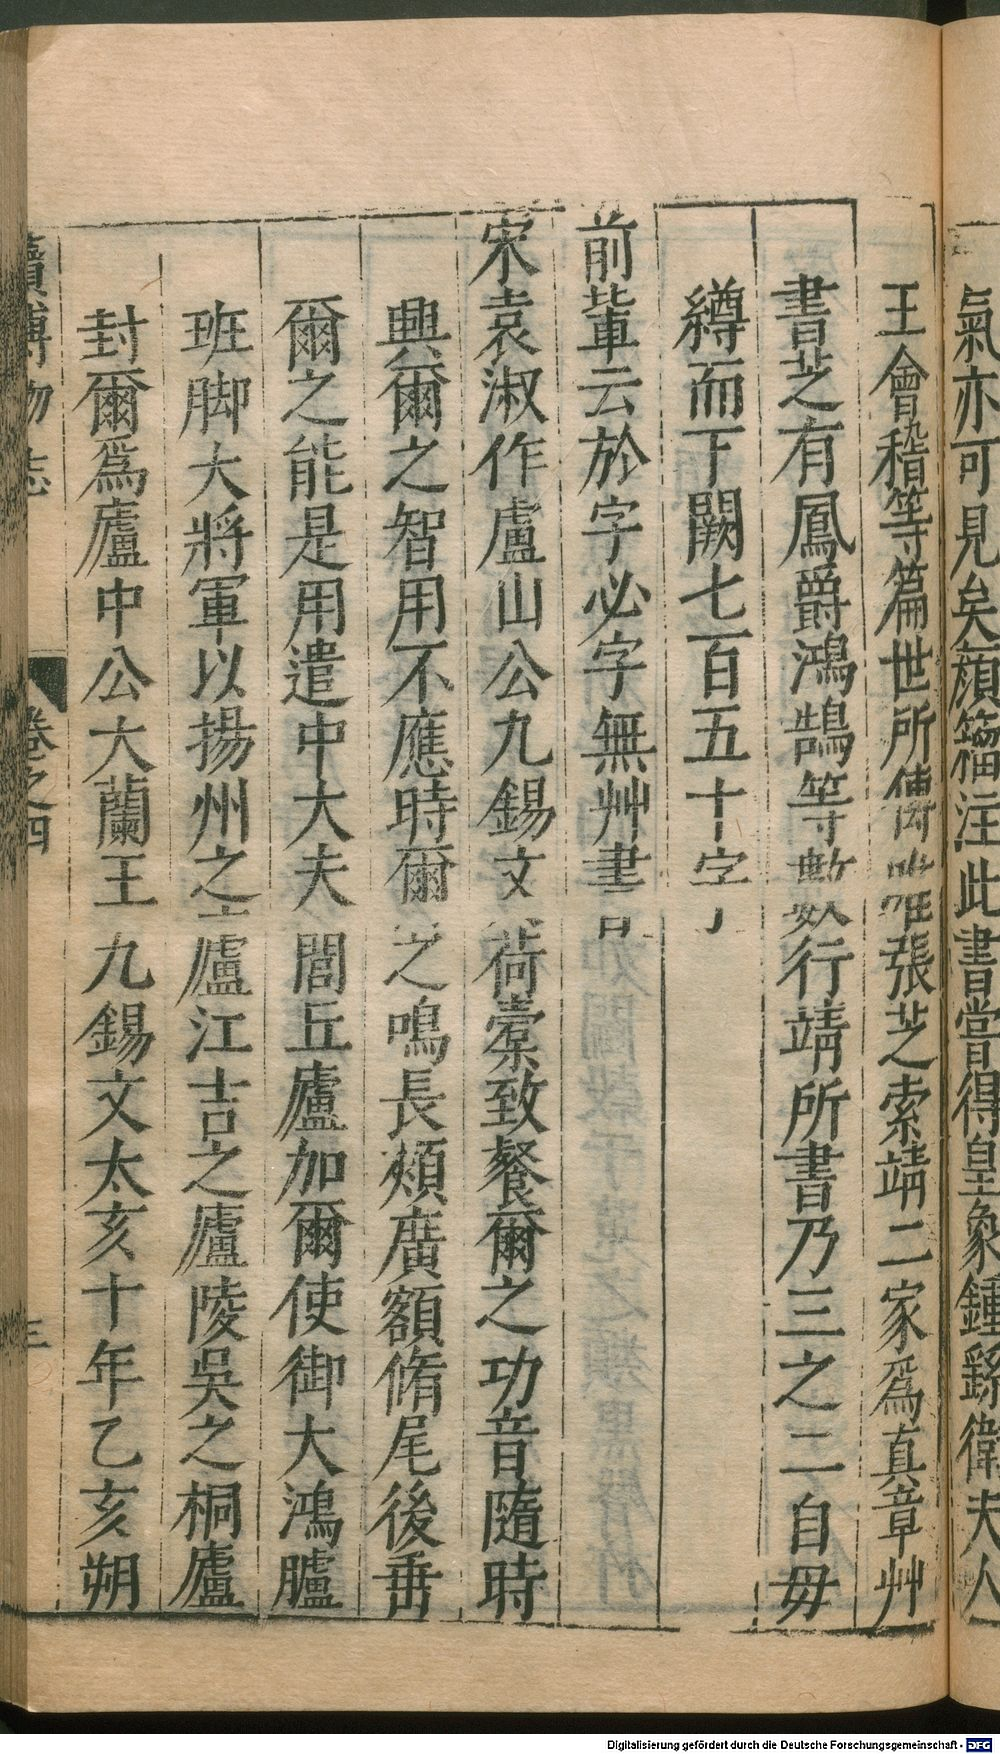 氣亦可見矣顔籀注此書嘗得皇象鍾繇衛夫人
王會稽等篇世所傳唯張芝索靖二家爲真章艸
書芝有鳳爵鴻鵠等數行靖所書乃三之二自毋
縛而下闕七百五十字
前輩云於字必字無艸書
宋袁淑作盧山公九錫文荷槖致餐爾之功音隨時
興爾之智用不應時爾之鳴長頰廣額脩尾後垂
爾之能是用遣中大夫閭丘廬加爾使御大鴻臚
班脚大將軍以揚州之廬江吉之廬陵吳之桐廬
封爾爲廬中公大蘭王九錫文太亥十年乙亥朔
續博物志 卷之四 三
Digitalisierung gefördert durch die Deutsche Forschungsgemeinschaft - DFG